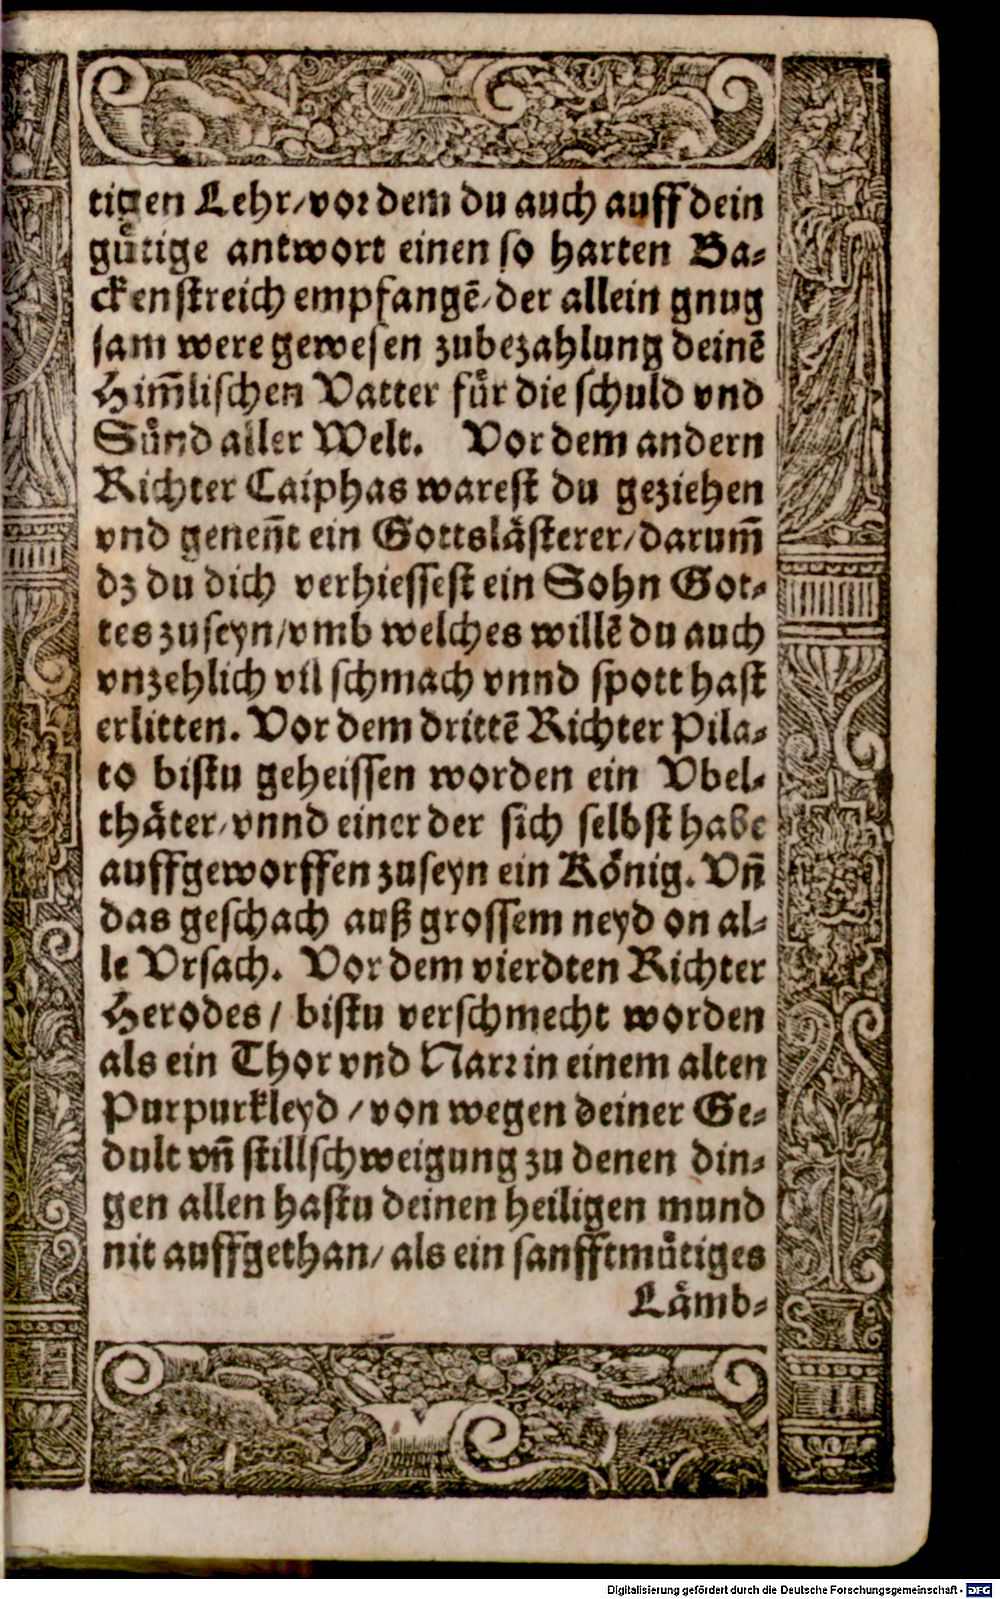 tigen Lehr/vor dem du auch auff dein
guͤtige antwort einen so harten Ba-
ckenstreich empfangē/der allein gnug
sam were gewesen zubezahlung deinē
Him̃lischen Vatter fuͤr die schuld vnd
Suͤnd aller Welt. Vor dem andern
Richter Caiphas warest du geziehen
vnd geneñt ein Gottslaͤsterer/darum̃
dz du dich verhiessest ein Sohn Got-
tes zuseyn/vmb welches willē du auch
vnzehlich vil schmach vnnd spott hast
erlitten. Vor dem drittē Richter Pila-
to bistu geheissen worden ein Vbel-
thaͤter/vnnd einer der sich selbst habe
auffgeworffen zuseyn ein Koͤnig. Vñ
das geschach auß grossem neyd on al-
le Vrsach. Vor dem vierdten Richter
Herodes/ bistu verschmecht worden
als ein Thor vnd Narr in einem alten
Purpurkleyd/von wegen deiner Ge-
dult vñ stillschweigung zu denen din-
gen allen hastu deinen heiligen mund
nit auffgethan/als ein sanfftmuͤtiges
Laͤmb-
Digitalisierung gefördert durch die Deutsche Forschungsgemeinschaft - DFG